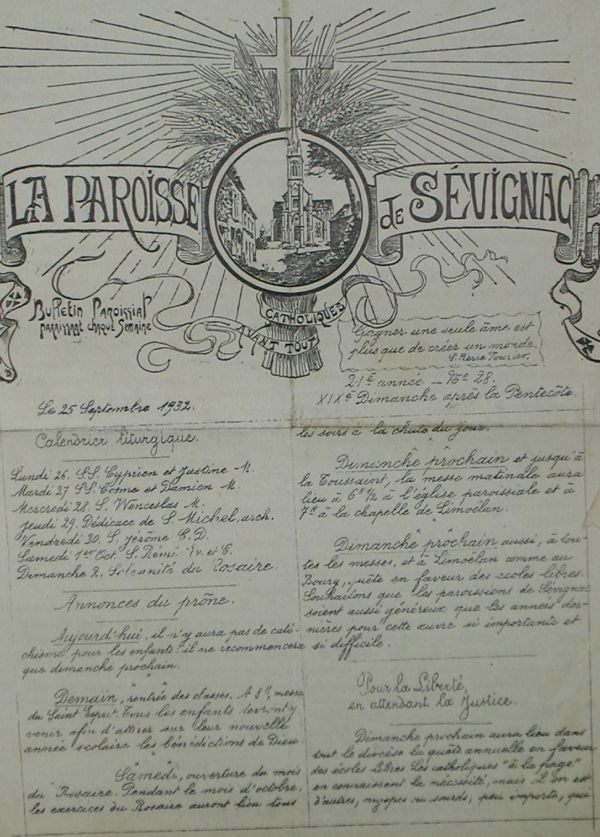 LA PAROISSE de SÉVIGNAC
Bulletin Paroissial
paraissant chaque Semaine
CATHOLIQUES
AVANT TOUT
Gagner une seule âme est
plus que de créer un monde.
S. Pierre Fourier.
21e année – No 28.
XIXe Dimanche après la Pentecôte
Le 25 Septembre 1932.
Calendrier liturgique.
Lundi 26. SS. Cyprien et Justine M.
Mardi 27 SS. Cosme et Damien M.
Mercredi 28. S. Wenceslas M.
Jeudi 29. Dédicace de S. Michel, arch.
Vendredi 30. S. Jérôme C. D.
Samedi 1er Oct. S. Rémi Ev. et C.
Dimanche 2. Solennité du Rosaire.
Annonces du prône.
Aujourd'hui, il n'y aura pas de caté-
chisme pour les enfants : il ne recommencera
que dimanche prochain.
Demain, rentrée des classes. A 8h, messe
du Saint Esprit. Tous les enfants devront y
venir afin d'attirer sur leur nouvelle
année scolaire les bénédictions de Dieu
Samedi, ouverture du mois
du Rosaire. Pendant le mois d'octobre,
les exercices du Rosaire auront lieu tous
les soirs à la chute du jour.
Dimanche prochain et jusqu'à
la Toussaint, la messe matinale aura
lieu à 6h 1/2 à l'église paroissiale et à
7h à la chapelle de Limoëlan.
Dimanche prochain aussi, à tou-
tes les messes, et à Limoëlan comme au
Bourg, quête en faveur des écoles libres.
Souhaitons que les paroissiens de Sévignac
soient aussi généreux que les années der-
nières pour cette œuvre si importante et
si difficile.
Pour la Liberté,
en attendant la Justice.
Dimanche prochain aura lieu dans
tout le diocèse la quête annuelle en faveur
des écoles libres. Les catholiques "à la page"
en connaissent la nécessité, mais il en est
d'autres, myopes ou sourds, peu importe, qui